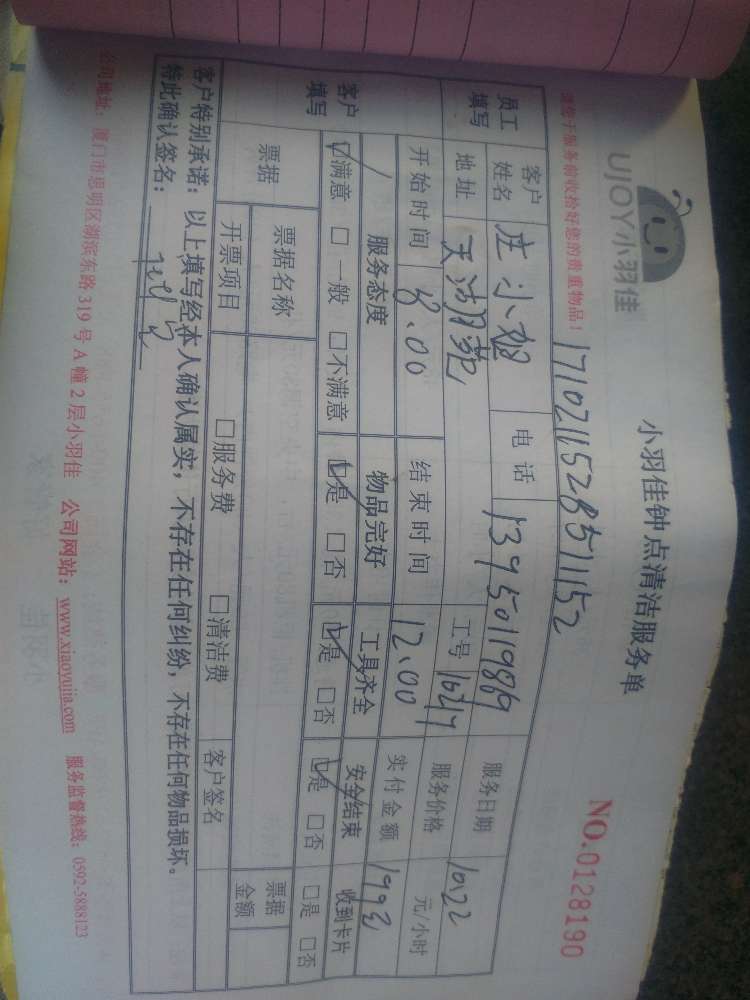 UJOY小羽佳
小羽佳钟点清洁服务单
NO.0128190
请您于服务前收拾好您的贵重物品！
1710211528511152
员工填写 客户姓名 庄小姐 电话 13950119869 服务日期 10.22
地址 天湖苑 工号 服务价格 元/小时
开始时间 8.00 结束时间 12.00 实付金额
客户填写 服务态度 物品完好 工具齐全 安全结束 收到卡片
☑满意 □一般 □不满意 ☑是 □否 ☑是 □否 ☑是 □否 □是 □否
票据 票据名称 票据金额
开票项目 □服务费 □清洁费 客户签名
客户特别承诺：以上填写经本人确认属实，不存在任何纠纷，不存在任何物品损坏。
特此确认签名：
公司地址：厦门市思明区湖滨东路319号A幢2层小羽佳 公司网站：www.xiaoyujia.com 服务监督热线：0592-5888123